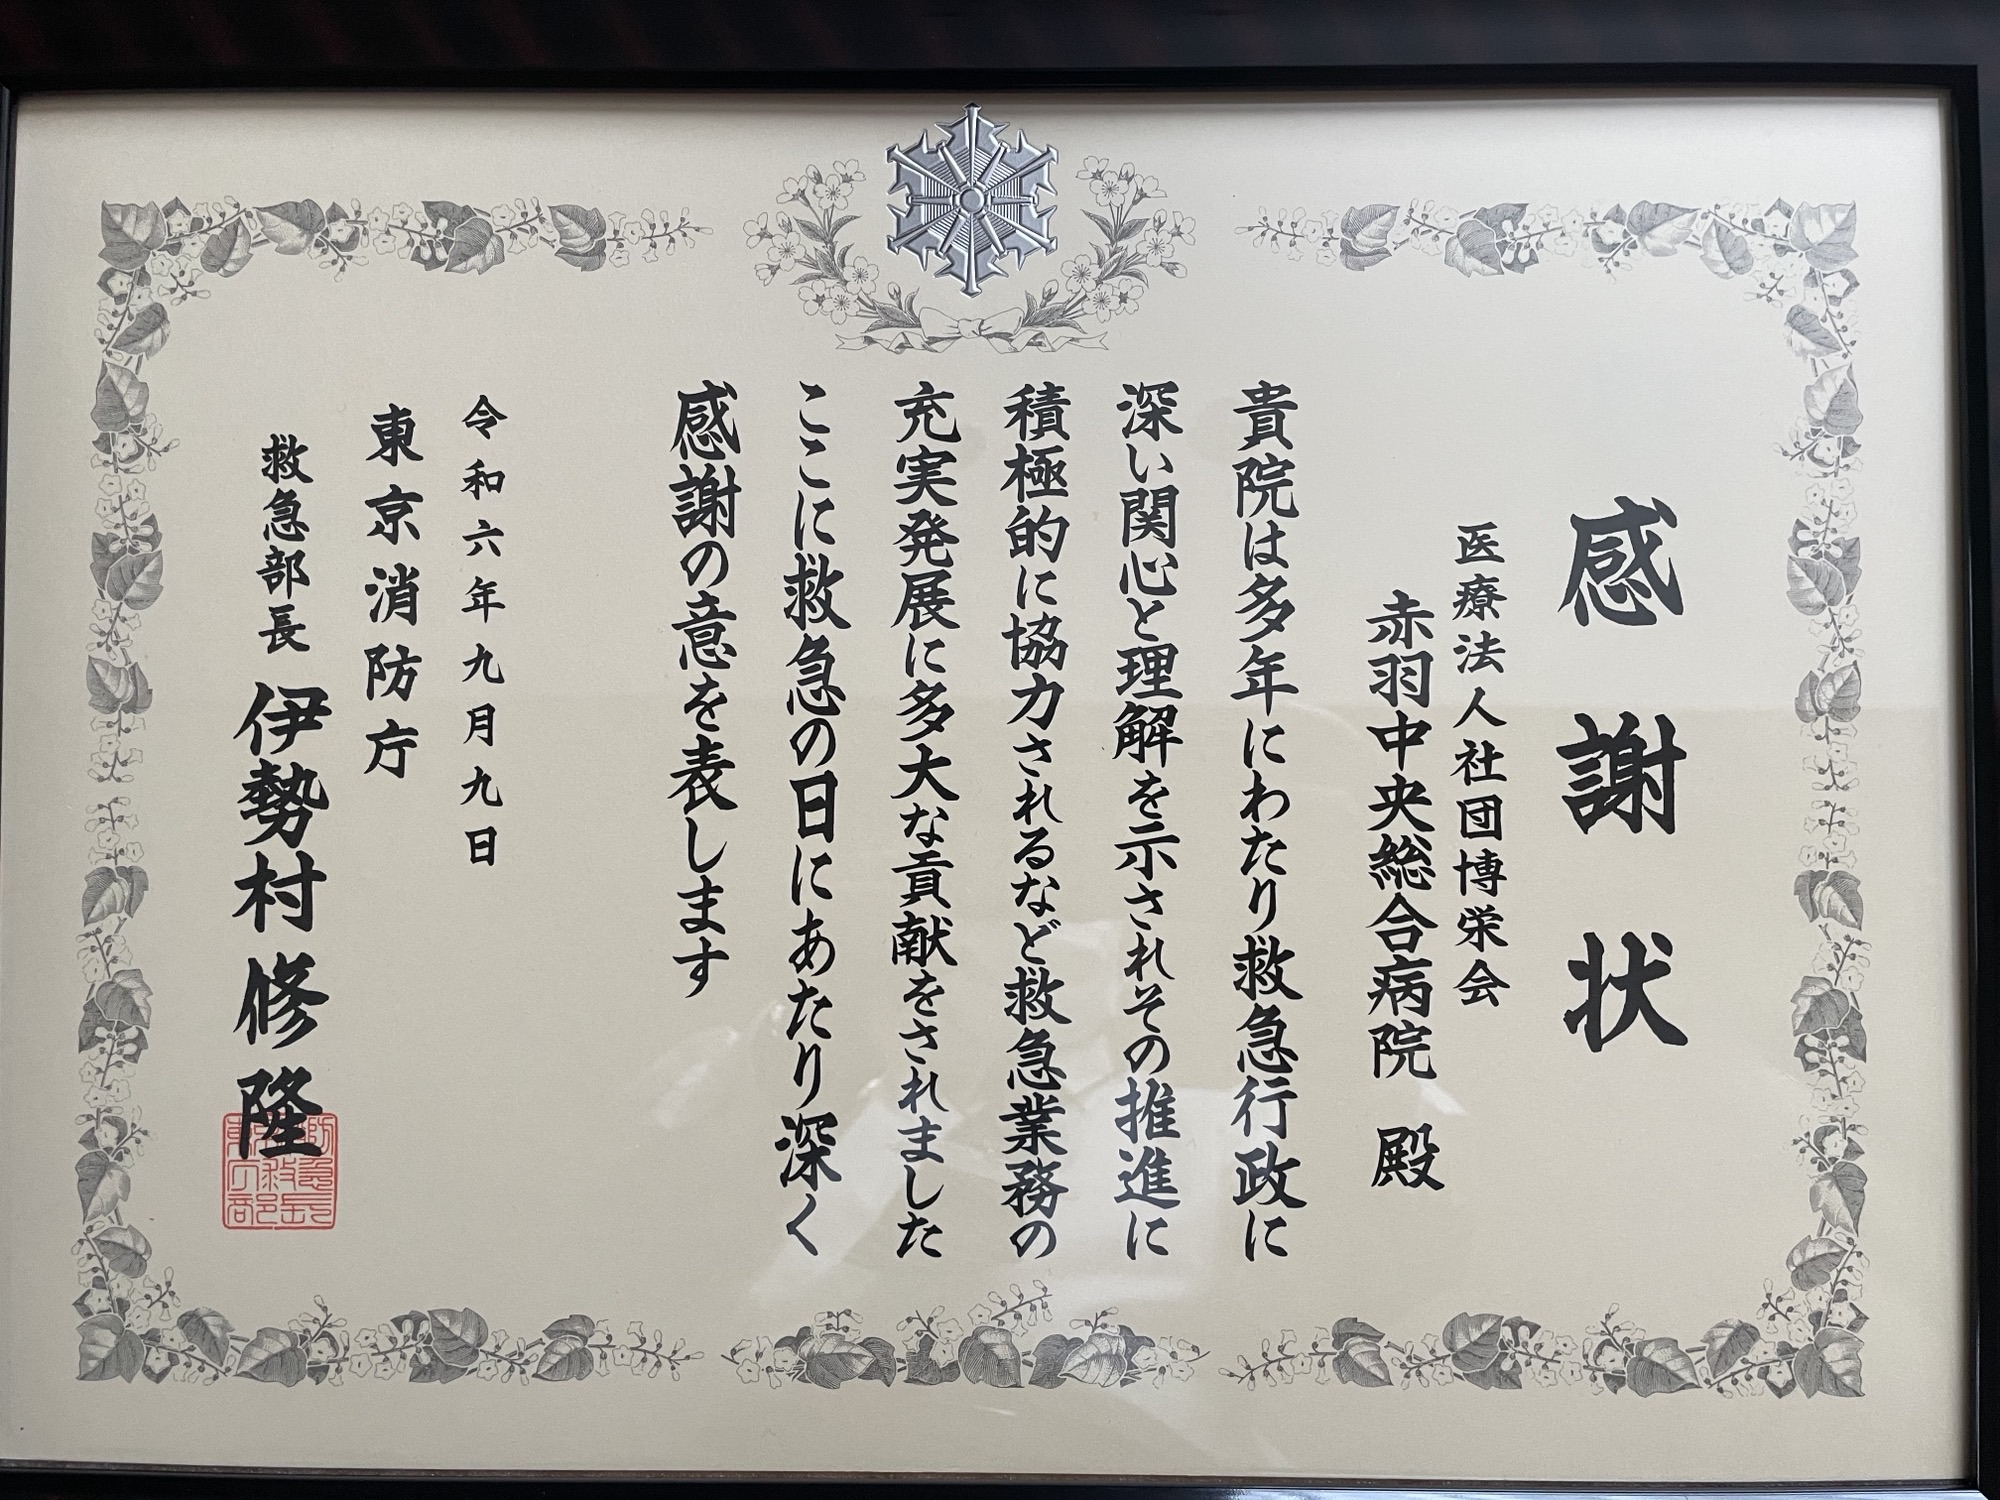 感謝状
医療法人社団博栄会
赤羽中央総合病院 殿
貴院は多年にわたり救急行政に
深い関心と理解を示されその推進に
積極的に協力されるなど救急業務の
充実発展に多大な貢献をされました
ここに救急の日にあたり深く
感謝の意を表します
令和六年九月九日
東京消防庁
救急部長 伊勢村修隆